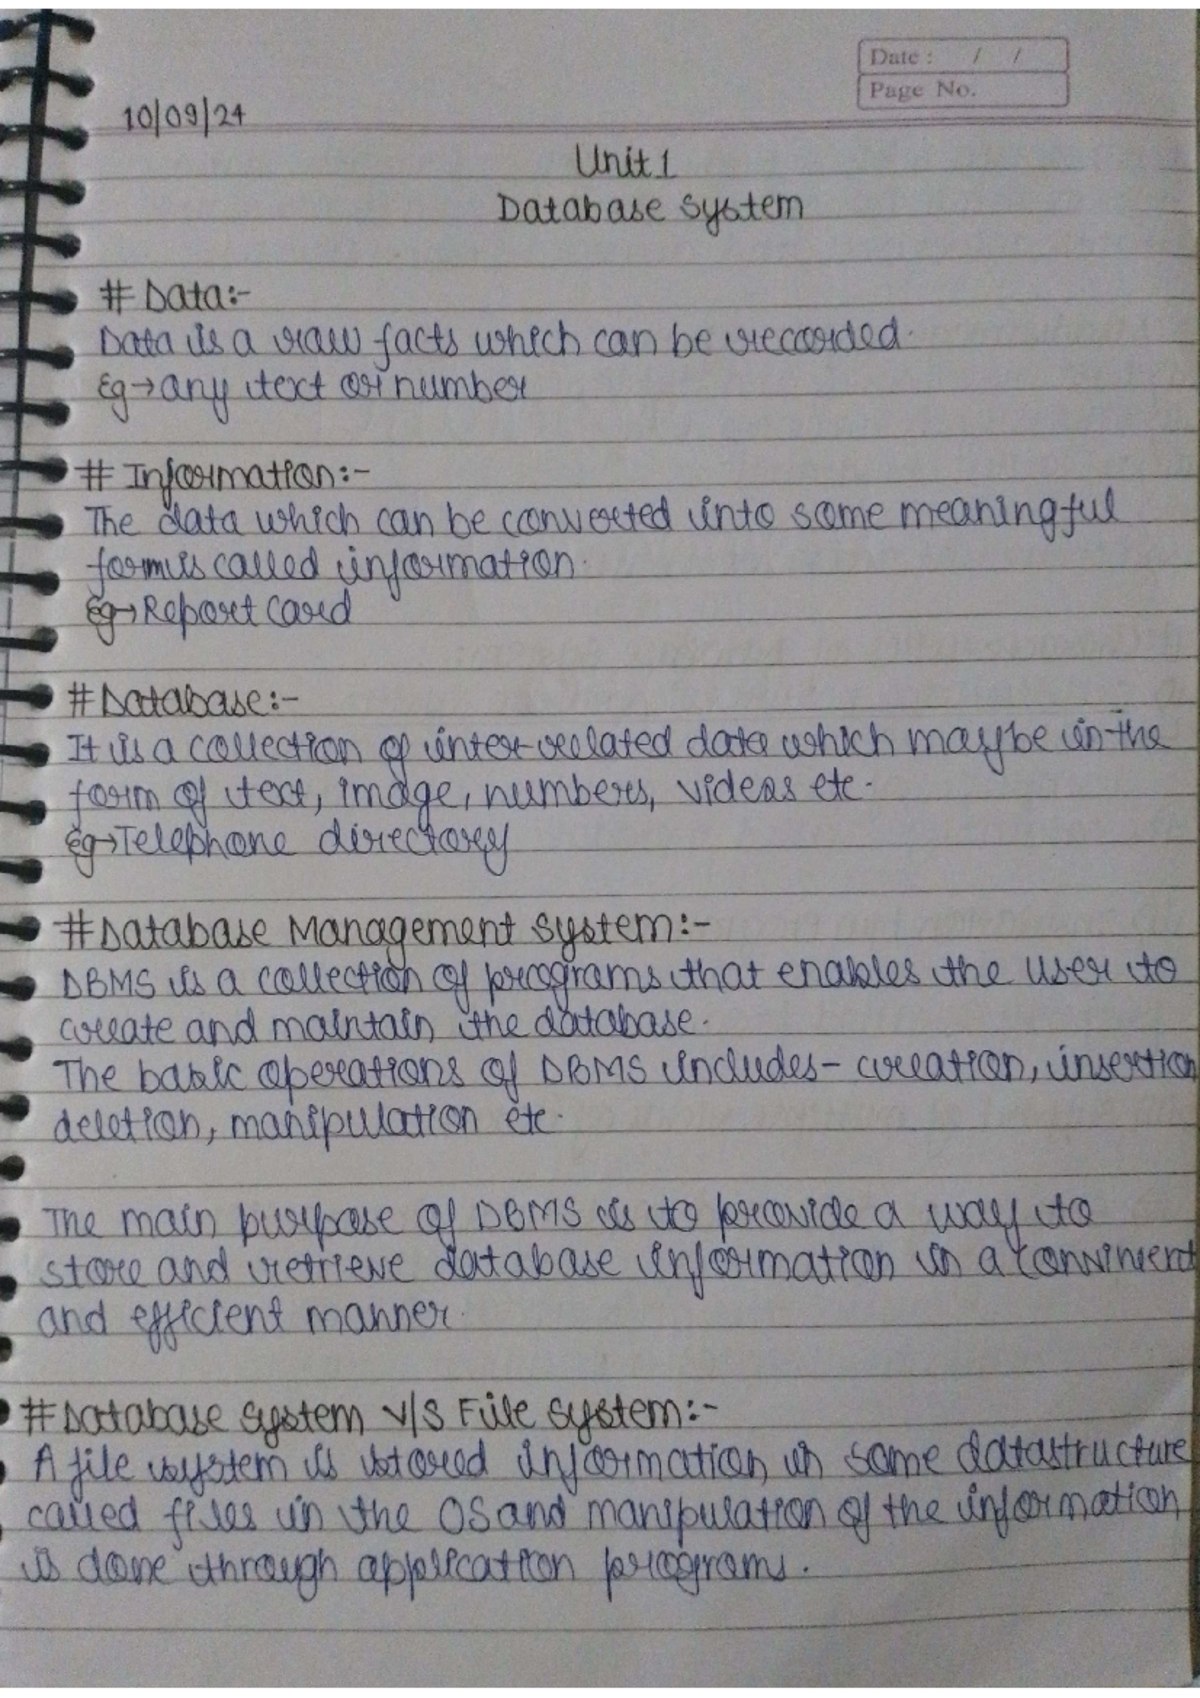 Date : / /
Page No.
10/09/24
Unit 1
Database System
# Data:-
Data is a raw facts which can be recorded.
Eg→any text or number
# Information:-
The data which can be converted into some meaningful
form is called information.
Eg→Report Card
#Database:-
It is a collection of inter-related data which may be in the
form of text, image, numbers, videos etc.
Eg→Telephone directory
#Database Management System:-
DBMS is a collection of programs that enables the user to
create and maintain the database.
The basic operations of DBMS includes- creation, insertion
deletion, manipulation etc.
The main purpose of DBMS is to provide a way to
store and retrieve database information in a convinient
and efficient manner.
#Database System V/S File System:-
A file system is stored information in some datastructure
called files in the OS and manipulation of the information
is done through application programs.